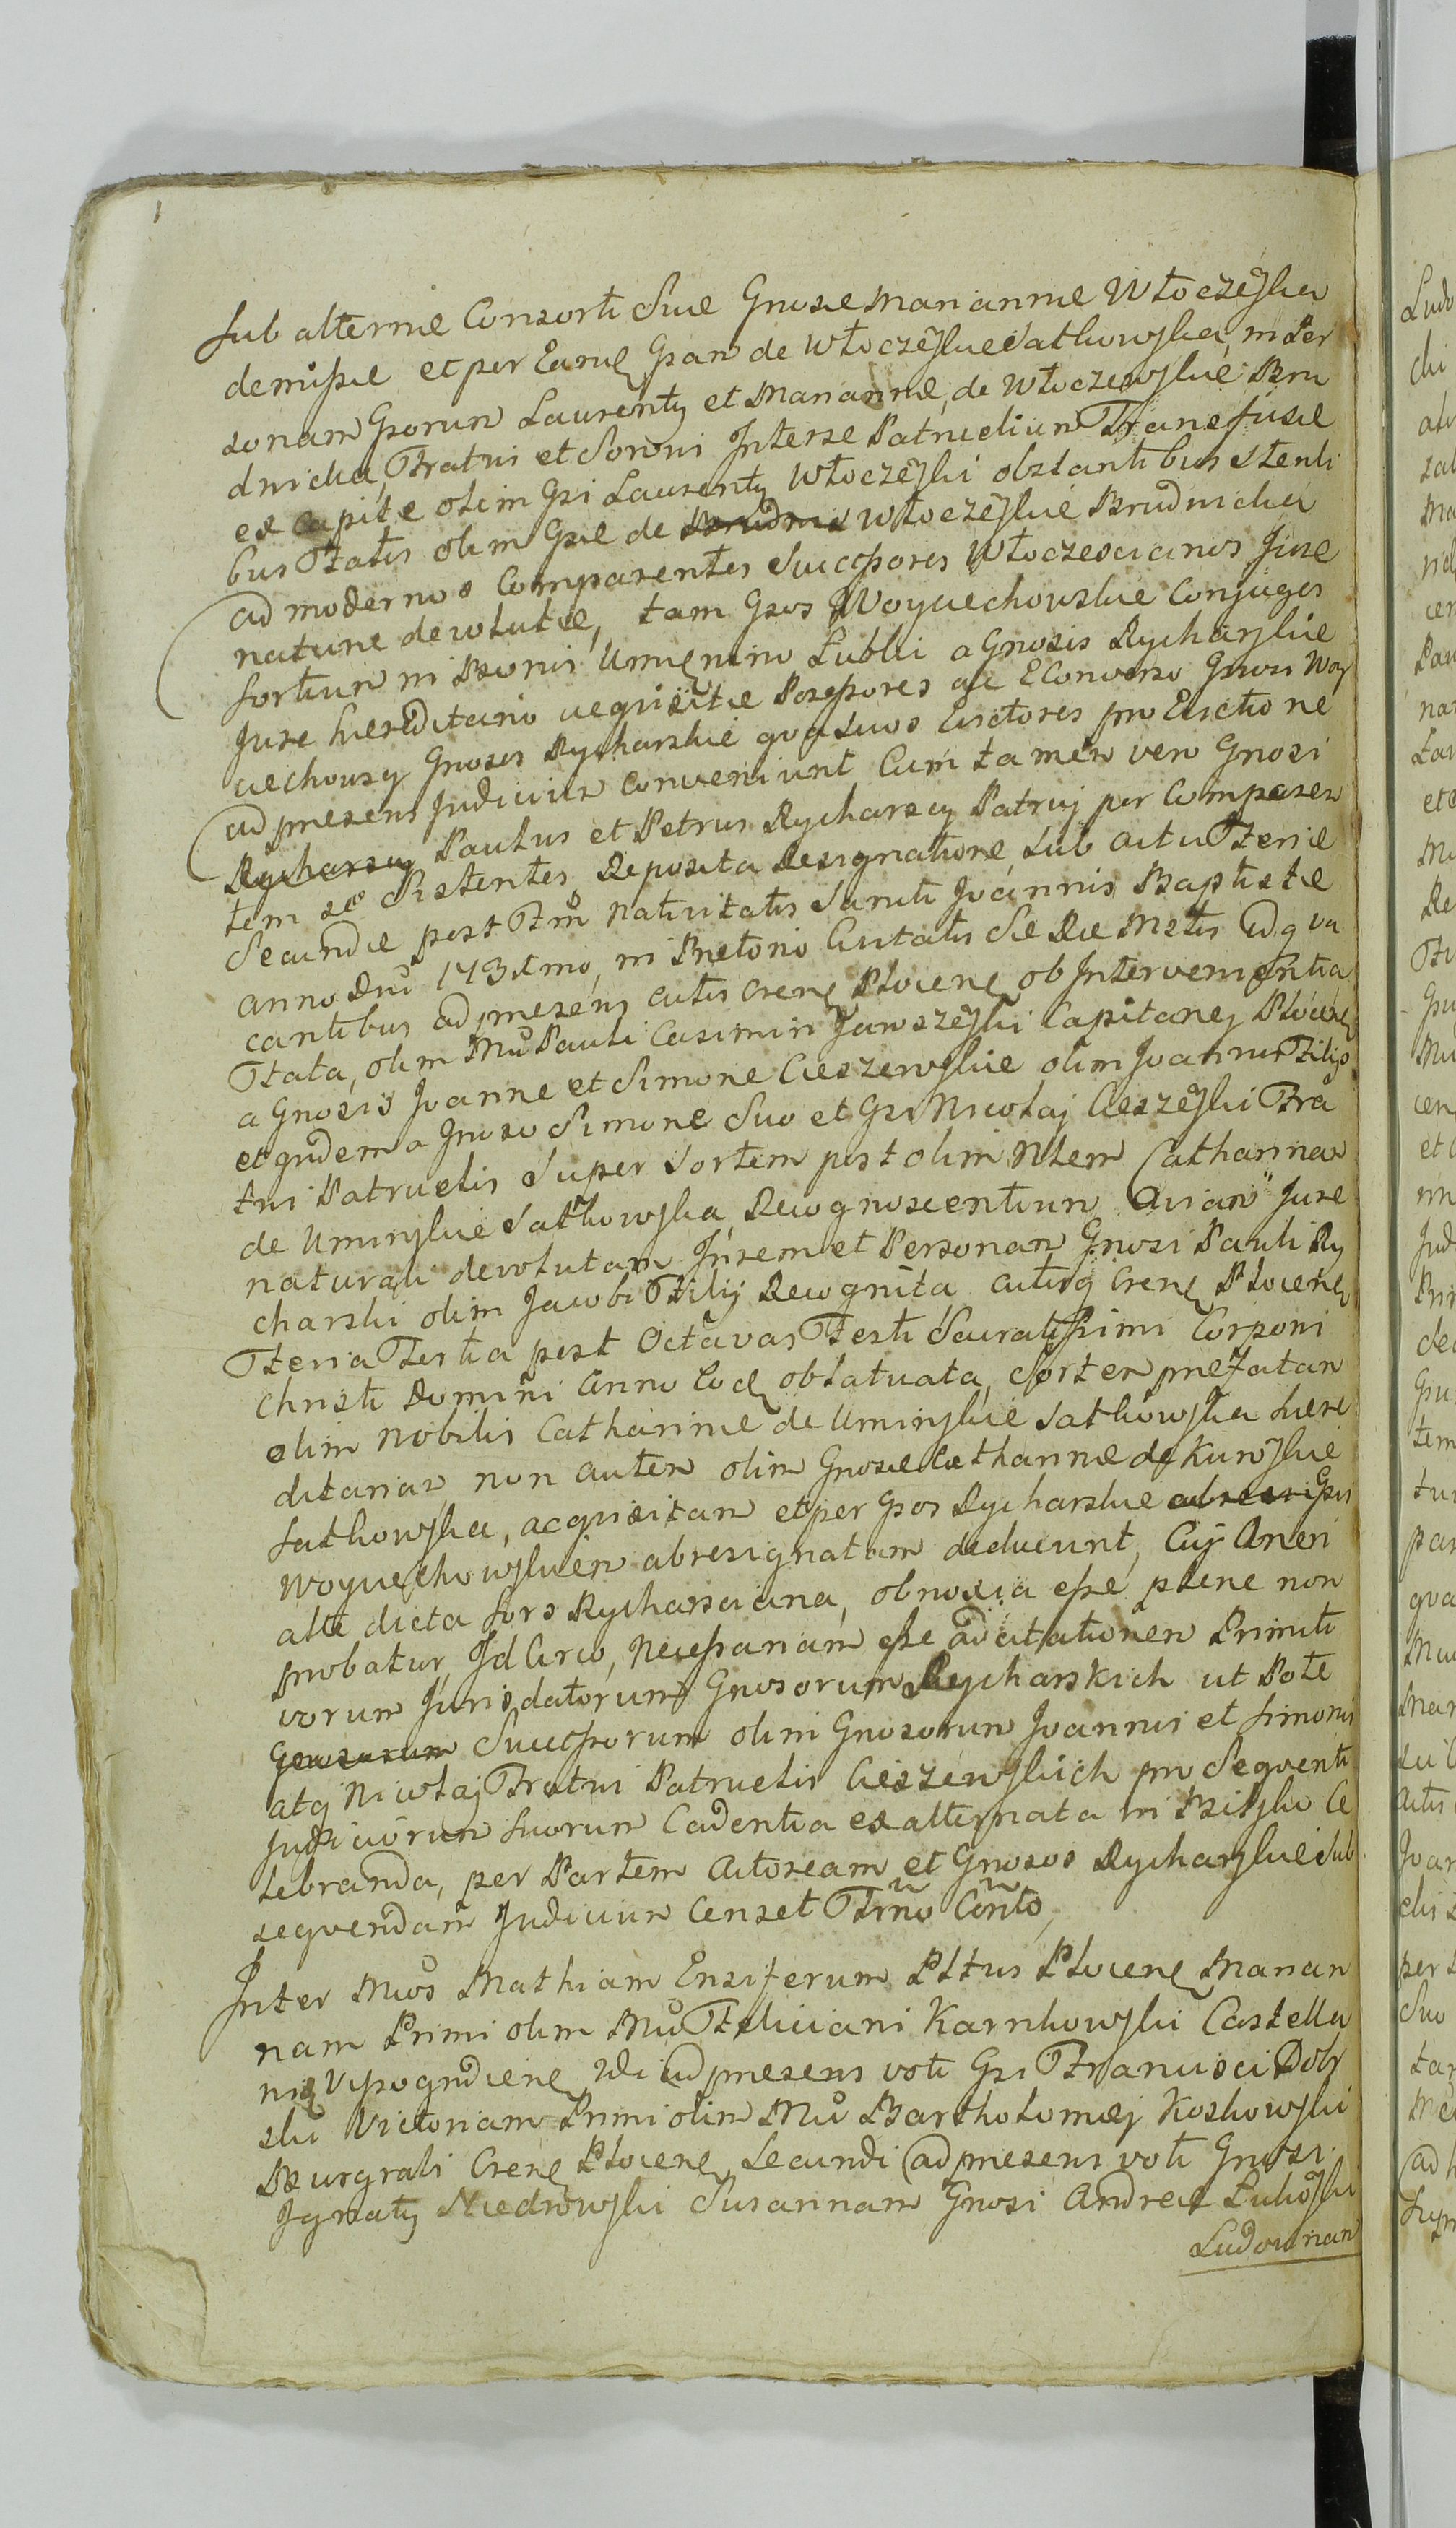 Sub alternæ Consorti Suæ Gnosæ Mariannæ Włoczeſka
demiſsæ et per Eand Gsam de Włoczeſkie Sathowſka, in Per
sonam Gsorum Laurentÿ et Mariannæ, de Włoczewſkie Bru
dnicka, Fratris et Sororis Interse Patruelium Transfusæ
ex Capite olim Gsi Laurentÿ Włoczeſki obstantibus Stenti
bus Fatis olim Gsæ de Włoczeſkie Brudnicka
ad modernos Comparentes Succeſsores Włoczescianos Jure
naturæ devolutæ, tam Gsos Woyciechowskie Conjuges
Sortium in Bonis Umięnino Łubki a Gnosis Rycharſkie
Jure hæreditario acquisitæ Poseſsores ac E Converso Gnosi Woy
ciechowscy Gnosos Rycharskie qva Suos Evictores pro Evictione
ad præsens Judicium Conveniunt Cum tamen vero Gnosi
Rycharscy Paulus et Petrus Rycharscy Patruj per Comparen
tem se Sistentes, Deposita Resignatione Sub actu Feriæ
Secundæ post Fm Nativitatis Sancti Joannis Baptistæ
anno Dni 173 mo, in Prætorio Civitatis S Ræ Mttis adqva
cantibus ad præsens actis Crens Plocens ob Intervenientia
Fata, olim Mu Pauli Casimiri Jaroszeſki Capitanej Plocens
a Gnosis Joanne et Simone Cieszewſkie olim Joannis Filijs
et qvidem a Gnoso Simone Suo et Gsi Nicolaj Cieszeſki Fra
tris Patruelis Super Sortem post olim Nlem Catharinam
de Uminſkie Sathowſka, Recognoscentium Aviam Jure
naturali devolutam Inrem et Personam Gnosi Pauli Ry
charski olim Jacobi Filij Recognita actisq Crens Plocens
Feria Tertia post Octavas Festi Sacratiſsimi Corporis
Christi Domini Anno Eod oblatuata, Sortem præfatam
olim Nobilis Catharinæ de Uminſkie Sathowſka hære
ditariam, non autem olim Gnosæ Catharinæ de Kurowſkie
Sathowſka, acquisitam et per Gsos Rycharskie Gsis
Woyciechowſkien abresignatam deducunt, Cuj Oneri
alte dicta Sors Rycharsciana, obnoxia eſse plene non
probatur, Id Circo, Neceſsariam eſse adcitationem Primiti
vorum Jurisdatorum Gnosorum Rycharskich ut Pote
Gnosorum Succeſsorum olim Gnosorum Joannis et Simonis
atq Nicolaj Fratris Patruelis Cieszewſkich pro Seqventi
Judiciorum Suorum Cadentia ex alternata in Bilſku Ce
lebranda, per Partem Actoream et Gnosos Rycharſkie Sub
seqvendam Judicium Censet Trno Cont,
Inter Mcos Mathiam Ensiferum Plttus Plocens Marian
nam Primi olim Mu Feliciani Karnkowſki Castella
ni Vysogrdiens, 2di ad præsens voti Gsi Francisci Dobr
ski Victoriam Primi olim Mu Bartholomæj Koskowſki
Burgrabi Crens Plocens Secundi ad præsens voti Gnosi
Ignatÿ Niedrowſki Susannam Gnosi Andreæ Lukoſki
Ludovinam